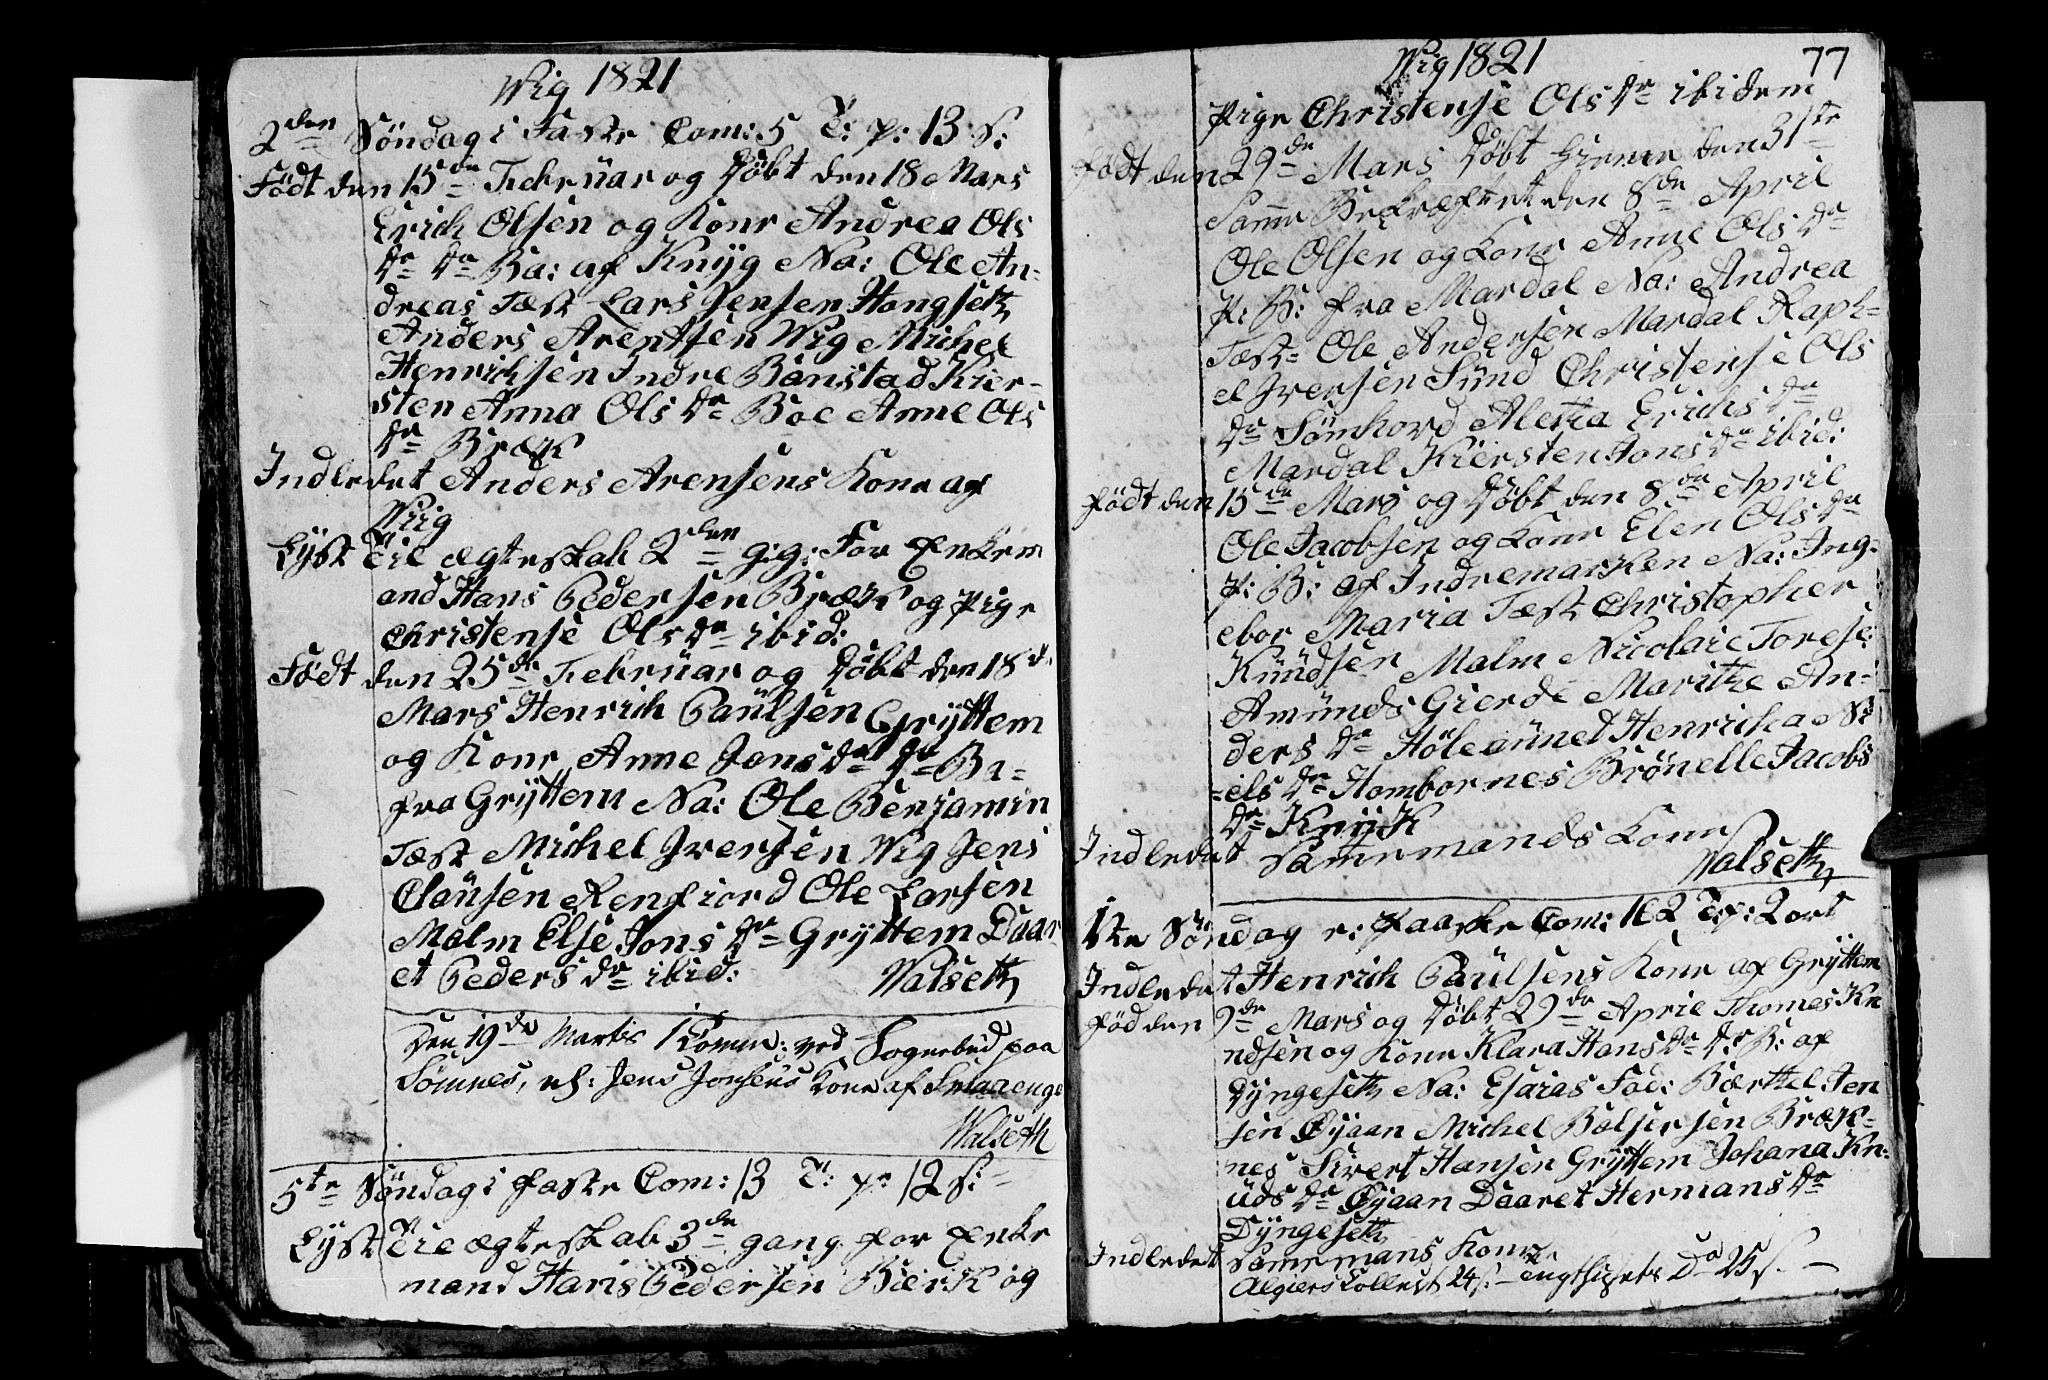 Wig 1821
2den Söndag i Faste Com: 5 T: p: 13 S:
Födt den 15de Februar og Döbt den 18 Mars
Erich Olsen og Kone Andrea Ols
Dr Dr Ba: af Knyg Na: Ole An-
dreas Test Lars Jensen Hongseth
Anders Arentsen Wig Michel
Henrichsen Indre Bonstad Kier-
sten Anna Ols Dr Boe Anne Ols
Dr Bræk
Indledet Anders Arensens Kone af
Wiig
Lyst Til Ægteskab 2den g:g: For Enkem
and Hans Pedersen Bræk og Pige
Christense Ols Dr ibid:
Födt den 25de Februar og Döbt den 18de
Mars Henrich Paulsen Gryttem
og Kone Anne Jons Dr Dr Ba-
fra Gryttem Na: Ole Benjamin
Test Michel Iversen Wig Jens
Clausen Renfiord Ole Larsen
Malm Else Jons Dr Gryttem Daar
et Peders Dr ibid: Walseth
Den 19de Martis 1 Comm: ved Sognebud paa
Sömnes, nl: Jens Jonsens Kone af Smaaenge
Walseth
5te Söndag i Faste Com: 13 T: p: 12 S:
Lyst Til Ægteskab 3de gang for Enke
mand Hans Pedersen Bierk og
Wig 1821 77
Pige Christense Ols Dr ibidem
Födt den 29de Mars Döbt Hieme den 31te
Samme Bekræftet den 8de April
Ole Olsen og Kone Anne Ols Dr
P: B: fra Mardal Na: Andrea
Test- Ole Andersen Mardal Raph-
el Iversen Sund Christense Ols
Dr Sömhovd Aletta Erichs Dr
Mardal Kiersten Jons Dr ibid:
Födt den 15de Mars og Döbt den 8de April
Ole Jacobsen og Kone Elen Ols Dr
P: B: af Indremarken Na: Ing-
ebor Maria Test Christopher
Knudsen Malm Nicolaie Torese:
Amunds Gierde Maritze An-
ders Dr Höleaunet Henricha Ni
-els Dr Hombornes Brönelle Jacobs
Dr Knyk
Indledet Sammemands Kone
Walseth
1ste Söndag e: Paaske Com: 102 T: p: 2 ort
Indledet Henrich Paulsens Kone af Gryttem
Föd den 9de Mars og Döbt 29de April Thomes Kn
udsen og Kone Klara Hans Dr Dr B: af
Dyngeseth Na: Esaias Fad: Bærthel Jen
sen Öyaan Michel Balsersen Bræk-
nes Sivert Hansen Gryttem Johana Kn-
uds Dr Öyaan Daaret Hermans Dr
Dyngeseth
Indledet Sammemans Kone